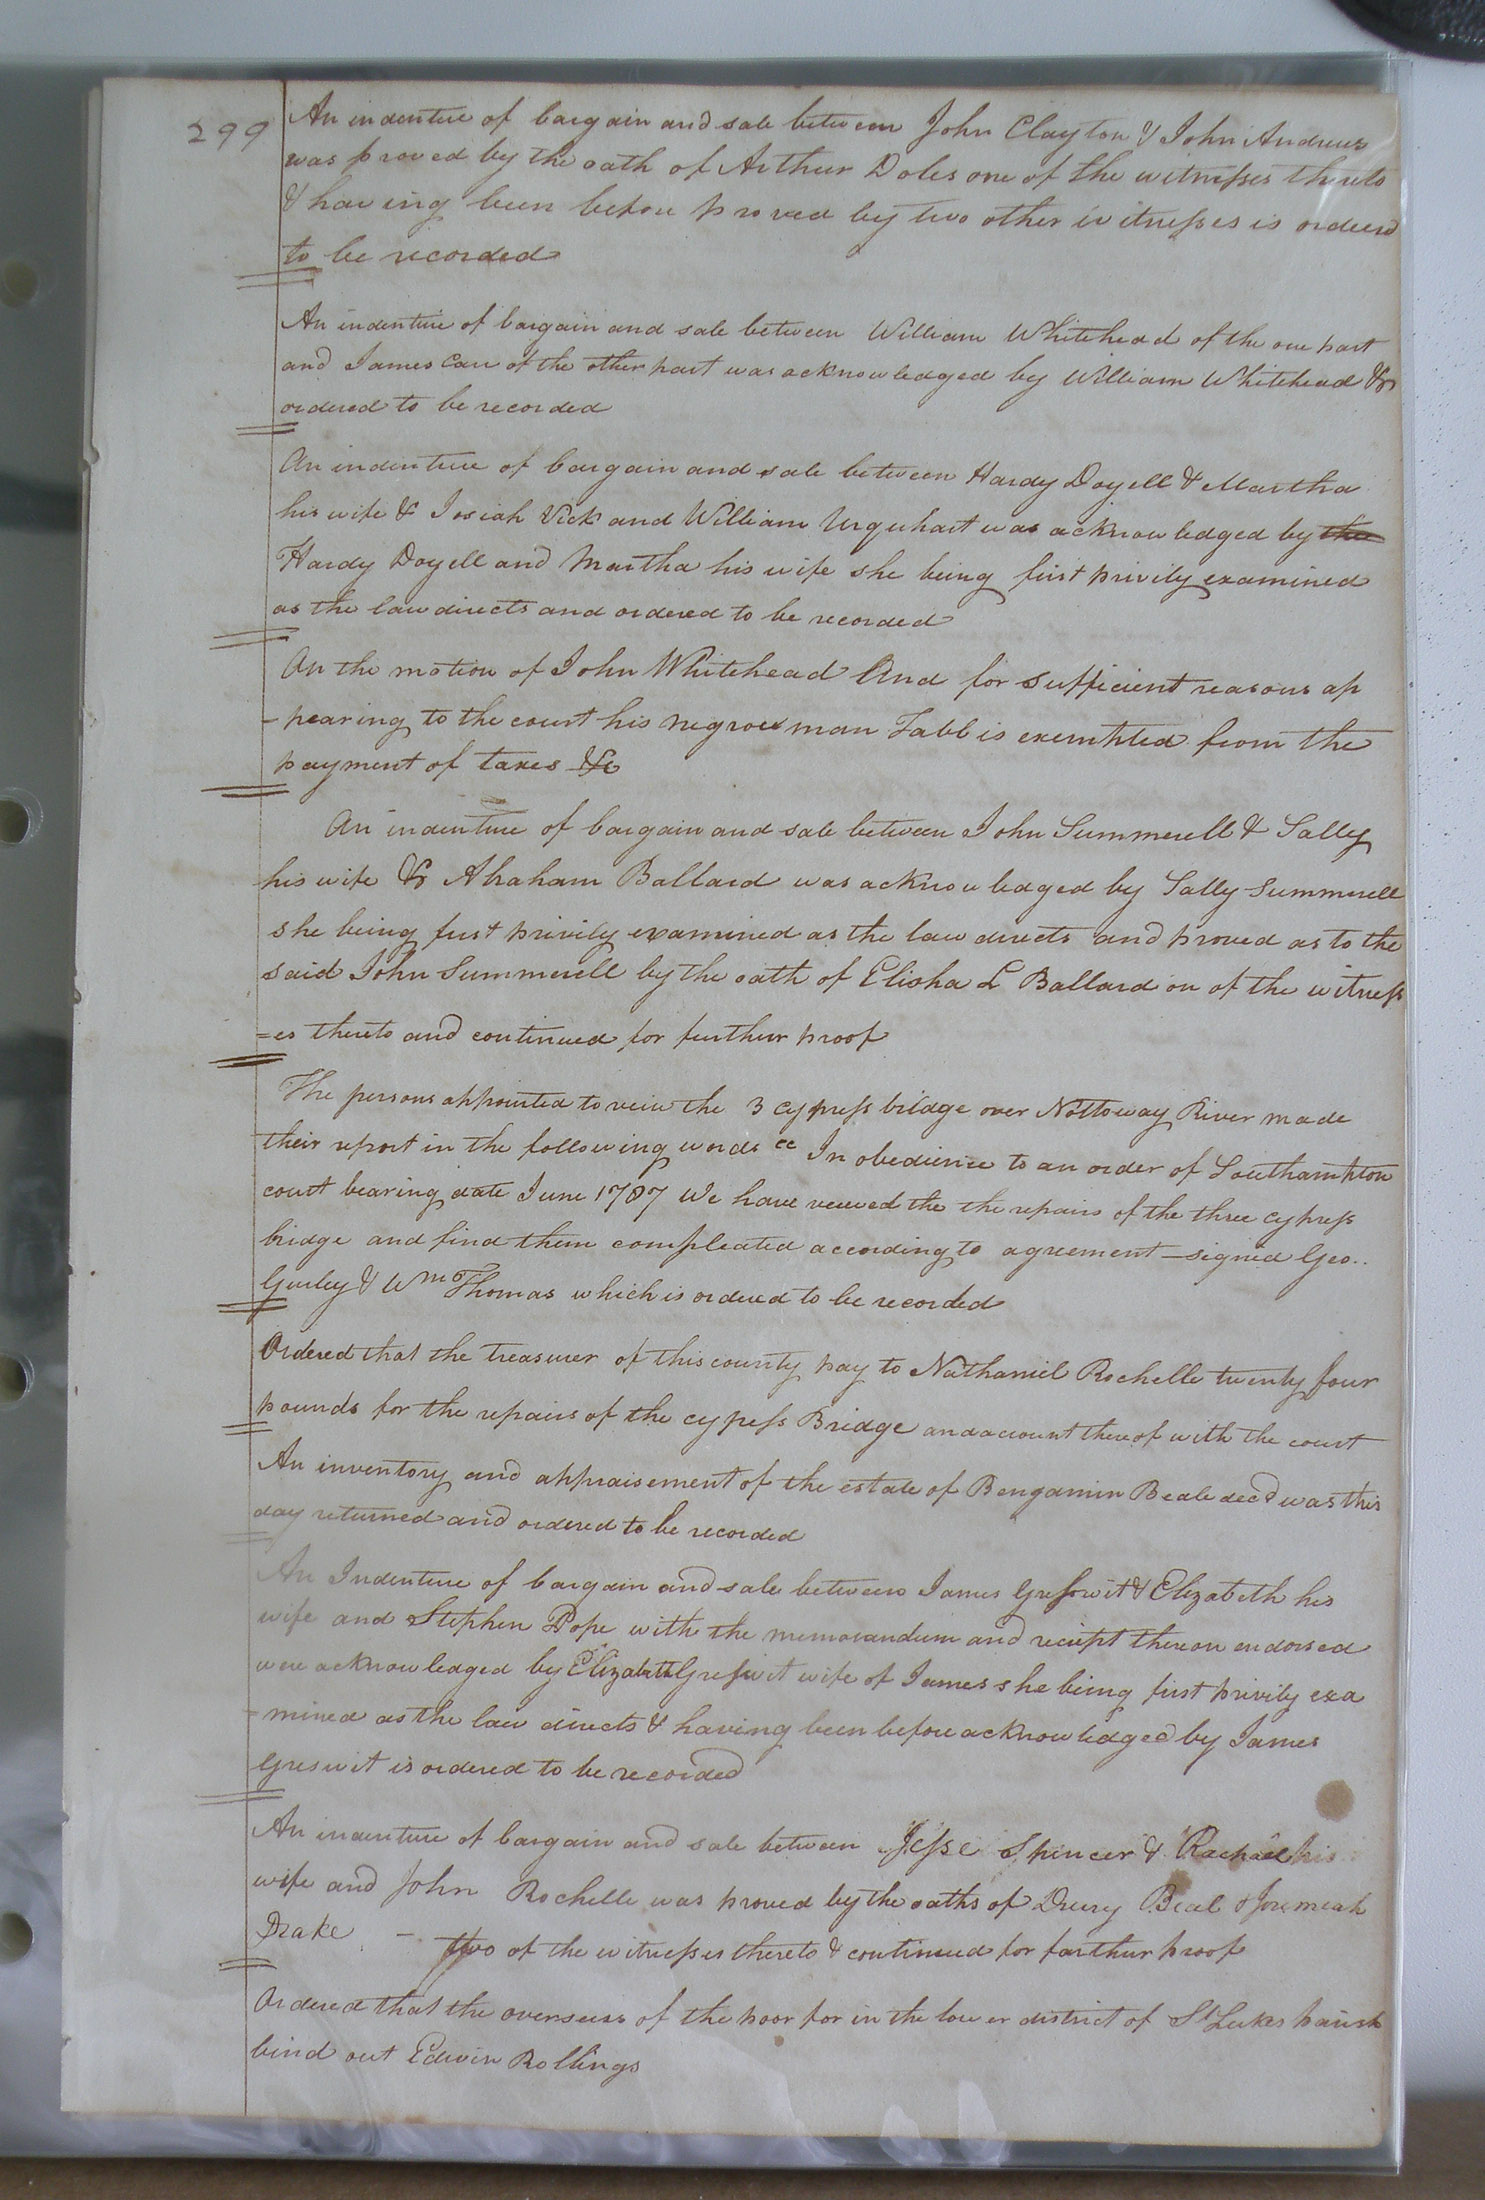 299
An indenture of bargain and sale between John Clayton & John Andrews
was proved by the oath of Arthur Doles one of the witnesses thereto
& having been before proved by two other witnesses is ordered
to be recorded
An indenture of bargain and sale between William Whitehead of the one part
and James Carr of the other part was acknowledged by William Whitehead &
ordered to be recorded
An indenture of bargain and sale between Hardy Doyell & Martha
his wife & Josiah Vick and William Urquhart was acknowledged by the
Hardy Doyell and Martha his wife she being first privily examined
as the law directs and ordered to be recorded
On the motion of John Whitehead And for sufficient reasons ap
-pearing to the court his negroe man Tabb is exempted from the
payment of taxes &c
An indenture of bargain and sale between John Summerell & Sally
his wife & Abraham Ballard was acknowledged by Sally Summerell
she being first privily examined as the law directs and proved as to the
said John Summerell by the oath of Elisha L Ballard on of the witness
=es thereto and continued for further proof
The persons appointed to veiw the 3 cypress bridge over Nottoway River made
their report in the following words "In obedience to an order of Southampton
court bearing date June 1787 We have veiwed the the repairs of the three cypress
bridge and find them compleated according to agreement – signed Geo..
Gurley & Wm Thomas which is ordered to be recorded
Ordered that the treasurer of this county pay to Nathaniel Rochelle twenty four
pounds for the repairs of the cypress Bridge and account thereof with the court
An inventory and appraisement of the estate of Bengamin Beale decd was this
day returned and ordered to be recorded
An Indenture of bargain and sale between James Gresswit & Elizabeth his
wife and Stephen Pope with the memorandum and reciept thereon endorsed
were acknowledged by Elizabeth Greswit wife of James she being first privily exa
-mined as the law directs & having been before acknowledged by James
Greswit is ordered to be recorded
An indenture of bargain and sale between Jesse Spencer & Rachael his
wife and John Rochelle was proved by the oaths of Drury Beal & Jeremiah
Drake – two of the witnesses thereto & continued for farthur proof
Ordered that the overseers of the poor for in the lower district of St Lukes parish
bind out Edwin Rollings